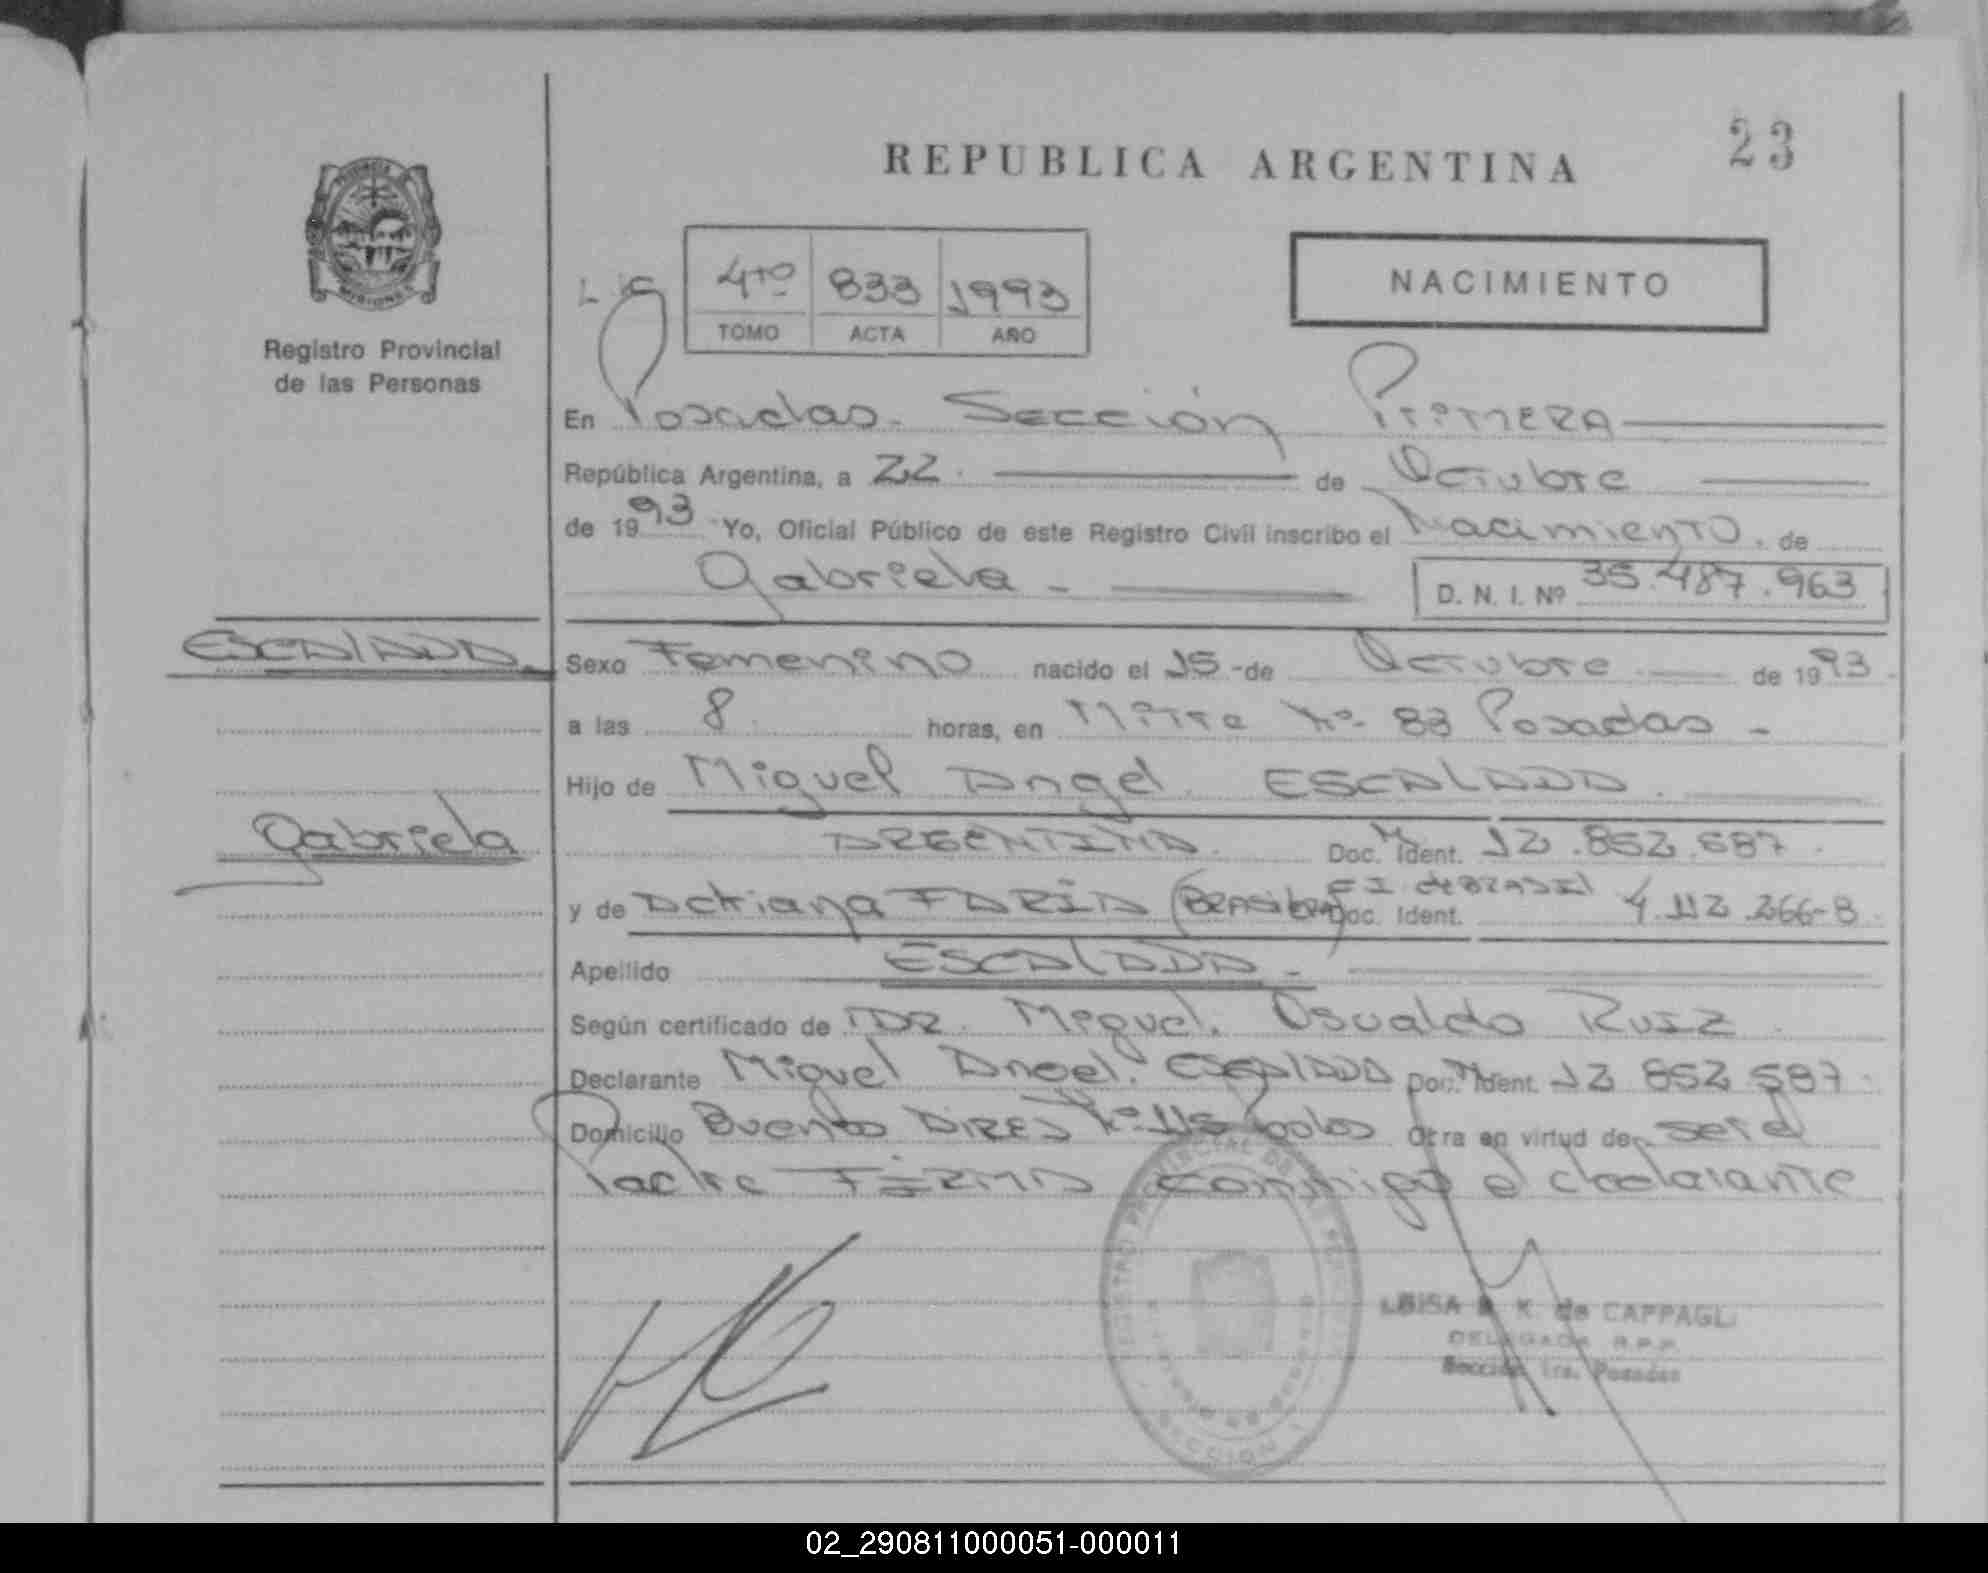 REPUBLICA ARGENTINA
23
PROVINCIA MISIONES
Registro Provincial
de las Personas
4to 833 1993
TOMO ACTA AÑO
NACIMIENTO
En Posadas. Sección Primera
República Argentina, a 22. de Octubre
de 1993 Yo, Oficial Público de este Registro Civil inscribo el Nacimiento. de
Gabriela - D. N. I. Nº 35.487.963
ESCALADA.
Sexo Femenino nacido el 15-de Octubre de 1993.
a las 8 horas, en Mitre Nº 83 Posadas -
Hijo de Miguel Angel ESCALADA.
Gabriela
ARGENTINA. Doc. Ident. 12.852.587.
y de Adriana FARIA (Brasilera) C I de BRASIL Doc. Ident. 4.112.266-8.
Apellido ESCALADA -
Según certificado de DR. Miguel. Osvaldo Ruiz
Declarante Miguel Angel. ESCALADA Doc. Ident. 12 852 587.
Domicilio Buenos Aires Nº 115 Obra en virtud de ser el
Padre FIRMA conmigo el declarante
REGISTRO PROVINCIAL DE LAS PERSONAS
SECCION 1
LUISA K. de CAPPAGLI
DELEGADA R.P.P.
Sección 1ra. Posadas
02_290811000051-000011